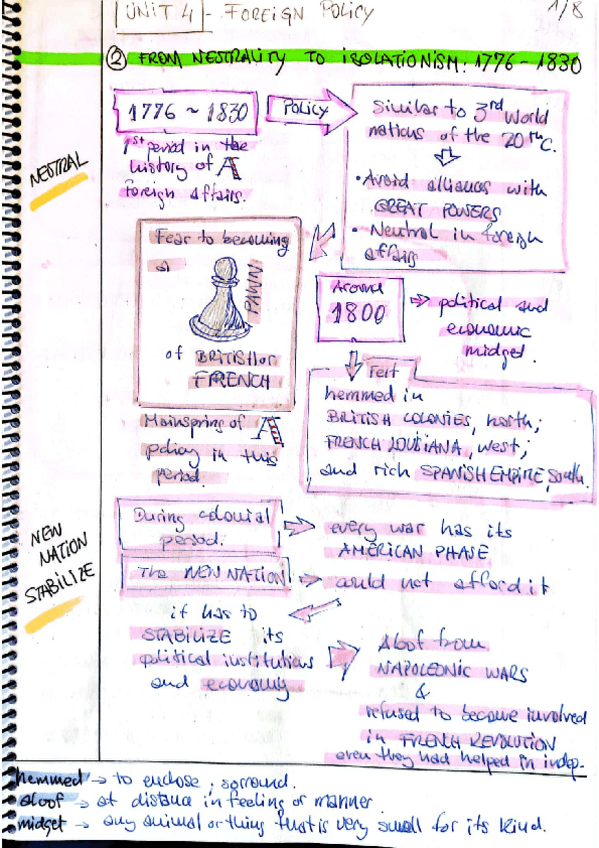 UNIT 4 - FOREIGN POLICY
1/8
② FROM NEUTRALITY TO ISOLATIONISM: 1776 - 1830
1776 ~ 1830
POLICY
Similar to 3rd World
nations of the 20th C.
• Avoid alliances with
GREAT POWERS
• Neutral in foreign
affairs
NEUTRAL
1st period in the
history of A
foreign affairs.
Fear to becoming
a
PAWN
of BRITISH or
FRENCH
Around
1800
political and
economic
midget.
Felt
hemmed in
BRITISH COLONIES, north;
FRENCH LOUBIANA, west;
and rich SPANISH EMPIRE, South.
Mainspring of A
policy in this
period.
During colonial
period.
every war has its
AMERICAN PHASE
NEW
NATION
STABILIZE
The NEW NATION
could not afford it
it has to
STABILIZE its
political institutions
and economy
Aloof from
NAPOLEONIC WARS
&
refused to become involved
in FRENCH REVOLUTION
even they had helped in indep.
hemmed → to enclose, sorround.
aloof → at distance in feeling or manner
midget → any animal or thing that is very small for its kind.